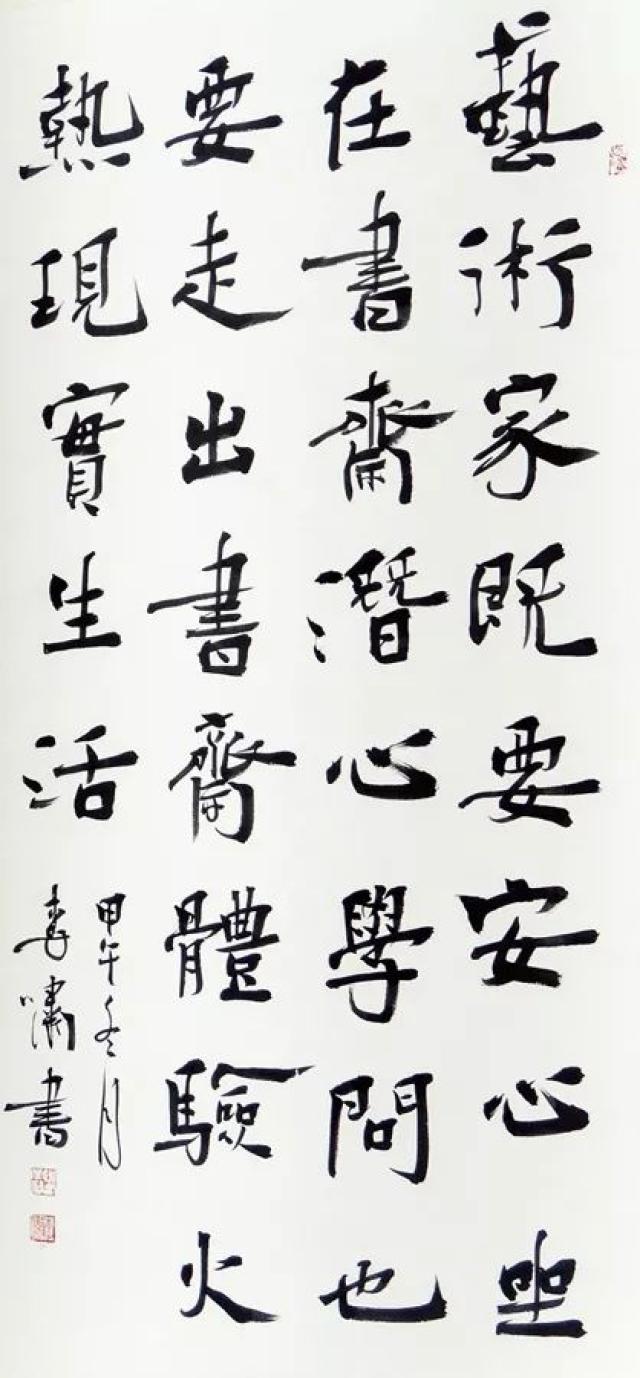 藝術家既要安心坐
在書齋潛心學問也
要走出書齋體驗火
熱現實生活
甲午冬月
李嘯書